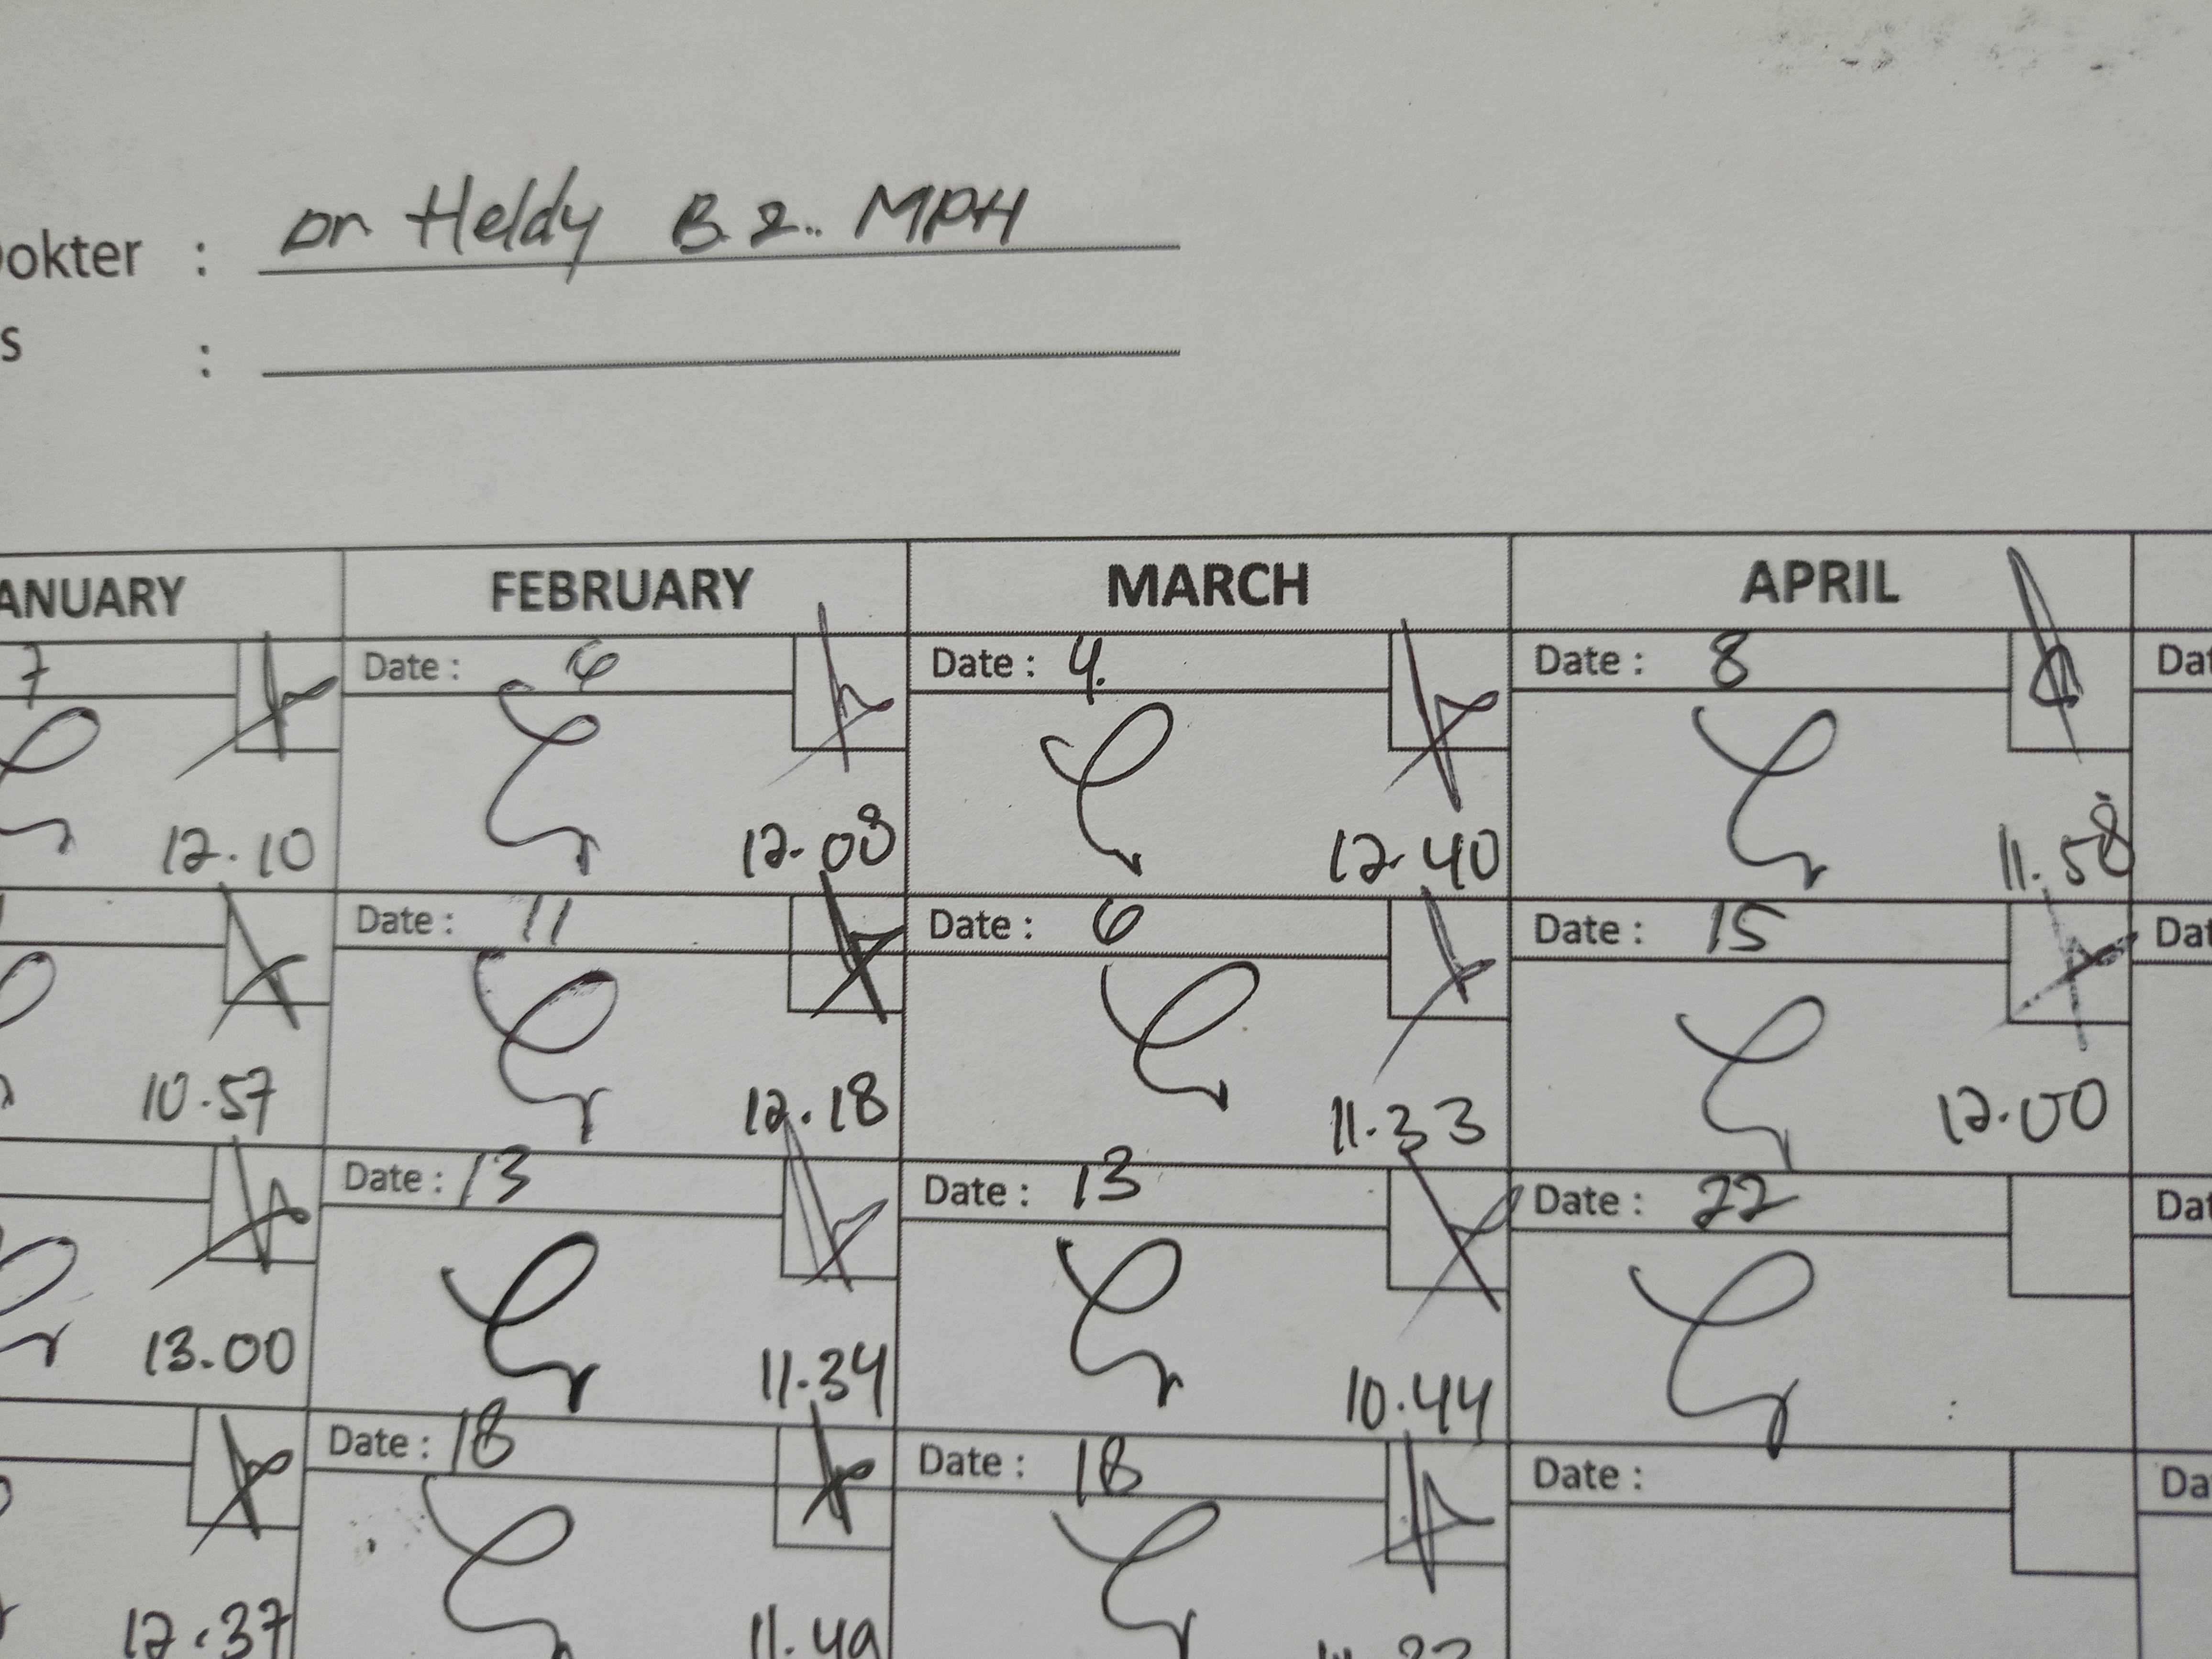 Dokter : Dr Heldy B.Z.. MPH
s :
ANUARY FEBRUARY MARCH APRIL
7 Date : 6 Date : 4. Date : 8 Dat
12.10 12.08 12.40 11.58
Date : 11 Date : 6 Date : 15 Dat
10.57 12.18 11.33 12.00
Date : 13 Date : 13 Date : 22 Dat
13.00 11.34 10.44
Date : 18 Date : 18 Date : Da
12.37 11.49